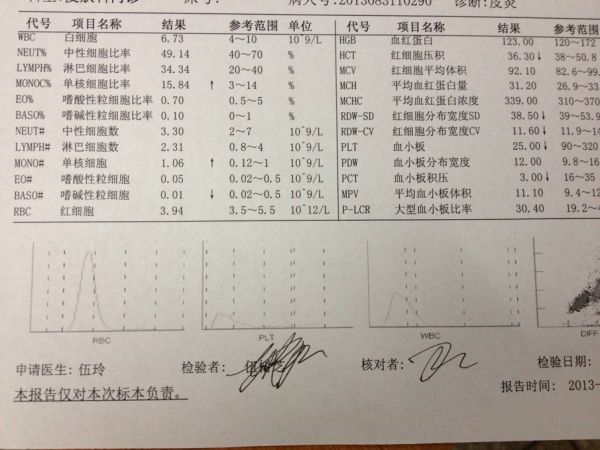 病人号:2013083110290 诊断:皮炎
代号 项目名称 结果 参考范围 单位 代号 项目名称 结果 参考范
WBC 白细胞 6.73 4~10 10^9/L HGB 血红蛋白 123.00 120~172
NEUT% 中性细胞比率 49.14 40~70 % HCT 红细胞压积 36.30↓ 38~50.8
LYMPH% 淋巴细胞比率 34.34 20~40 % MCV 红细胞平均体积 92.10 82.6~99.
MONOC% 单核细胞比率 15.84 ↑ 3~14 % MCH 平均血红蛋白量 31.20 26.9~33.
EO% 嗜酸性粒细胞比率 0.70 0.5~5 % MCHC 平均血红蛋白浓度 339.00 310~370
BASO% 嗜碱性粒细胞比率 0.10 0~1 % RDW-SD 红细胞分布宽度SD 38.50↓ 39~53.9
NEUT# 中性细胞数 3.30 2~7 10^9/L RDW-CV 红细胞分布宽度CV 11.60↓ 11.9~14
LYMPH# 淋巴细胞数 2.31 0.8~4 10^9/L PLT 血小板 25.00↓ 90~320
MONO# 单核细胞 1.06 ↑ 0.12~1 10^9/L PDW 血小板分布宽度 12.00 9.8~16
EO# 嗜酸性粒细胞 0.05 0.02~0.5 10^9/L PCT 血小板积压 3.00↓ 16~35
BASO# 嗜碱性粒细胞 0.01 ↓ 0.02~0.5 10^9/L MPV 平均血小板体积 11.10 9.4~12
RBC 红细胞 3.94 3.5~5.5 10^12/L P-LCR 大型血小板比率 30.40 19.2~4
RBC PLT WBC DIFF
申请医生: 伍玲 检验者: 核对者: 检验日期:
本报告仅对本次标本负责。 报告时间: 2013-